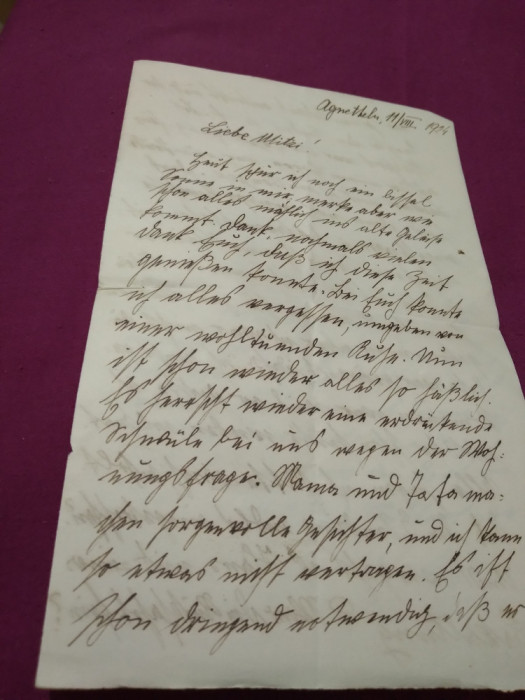 Agnetheln, 11/VIII.
Liebe Mitzi!
Heut spür ich noch ein bissel
Sonne in mir, merke aber wie
schon alles mählich ins alte Geleise
kommt. Dank, nochmals vielen
Dank Euch, daß ich diese Zeit
genießen konnte. Bei Euch konnte
ich alles vergessen, umgeben von
einer wohltuenden Ruhe. Nun
ist schon wieder alles so häßlich.
Es herrscht wieder eine erdrückende
Schwüle bei uns wegen der Woh-
nungsfrage. Mama und Tata ma-
chen sorgenvolle Gesichter, und ich kann
so etwas nicht vertragen. Es ist
schon dringend notwendig, daß er